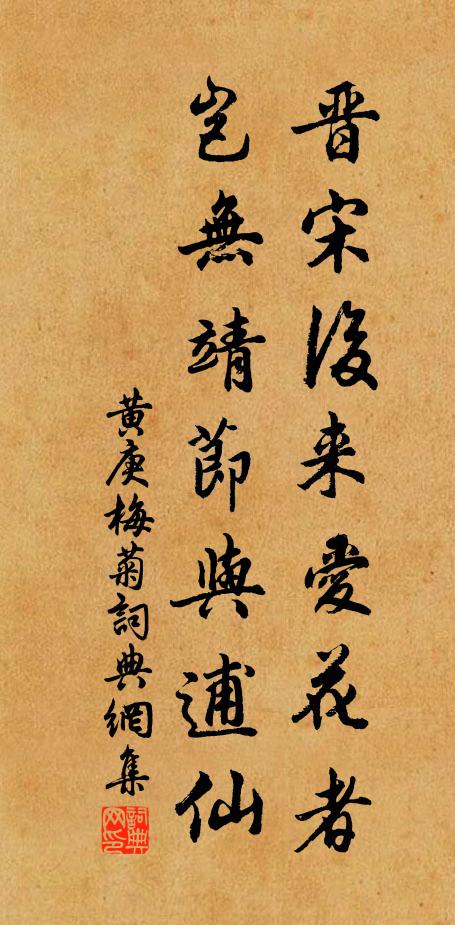 晋宋後来愛花者
豈無靖節與逋仙
黄庚梅菊詞典網集
詞典网印